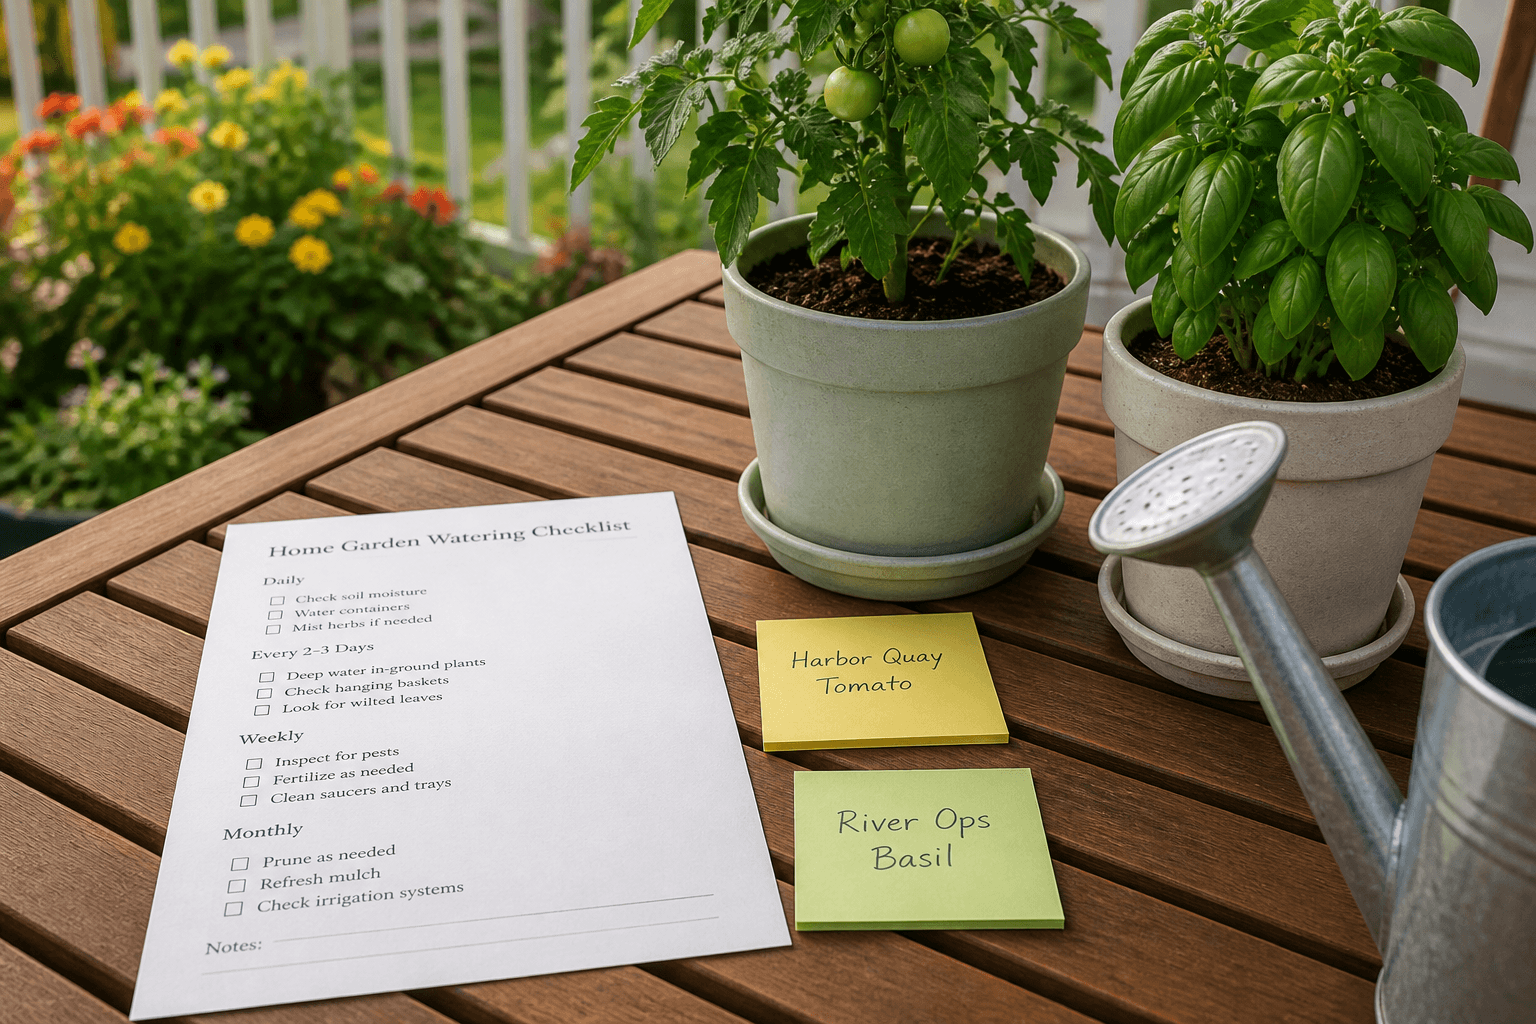 Home Garden Watering Checklist
Daily
Check soil moisture
Water containers
Mist herbs if needed
Every 2–3 Days
Deep water in-ground plants
Check hanging baskets
Look for wilted leaves
Weekly
Inspect for pests
Fertilize as needed
Clean saucers and trays
Monthly
Prune as needed
Refresh mulch
Check irrigation systems
Notes:
Harbor Quay
Tomato
River Ops
Basil